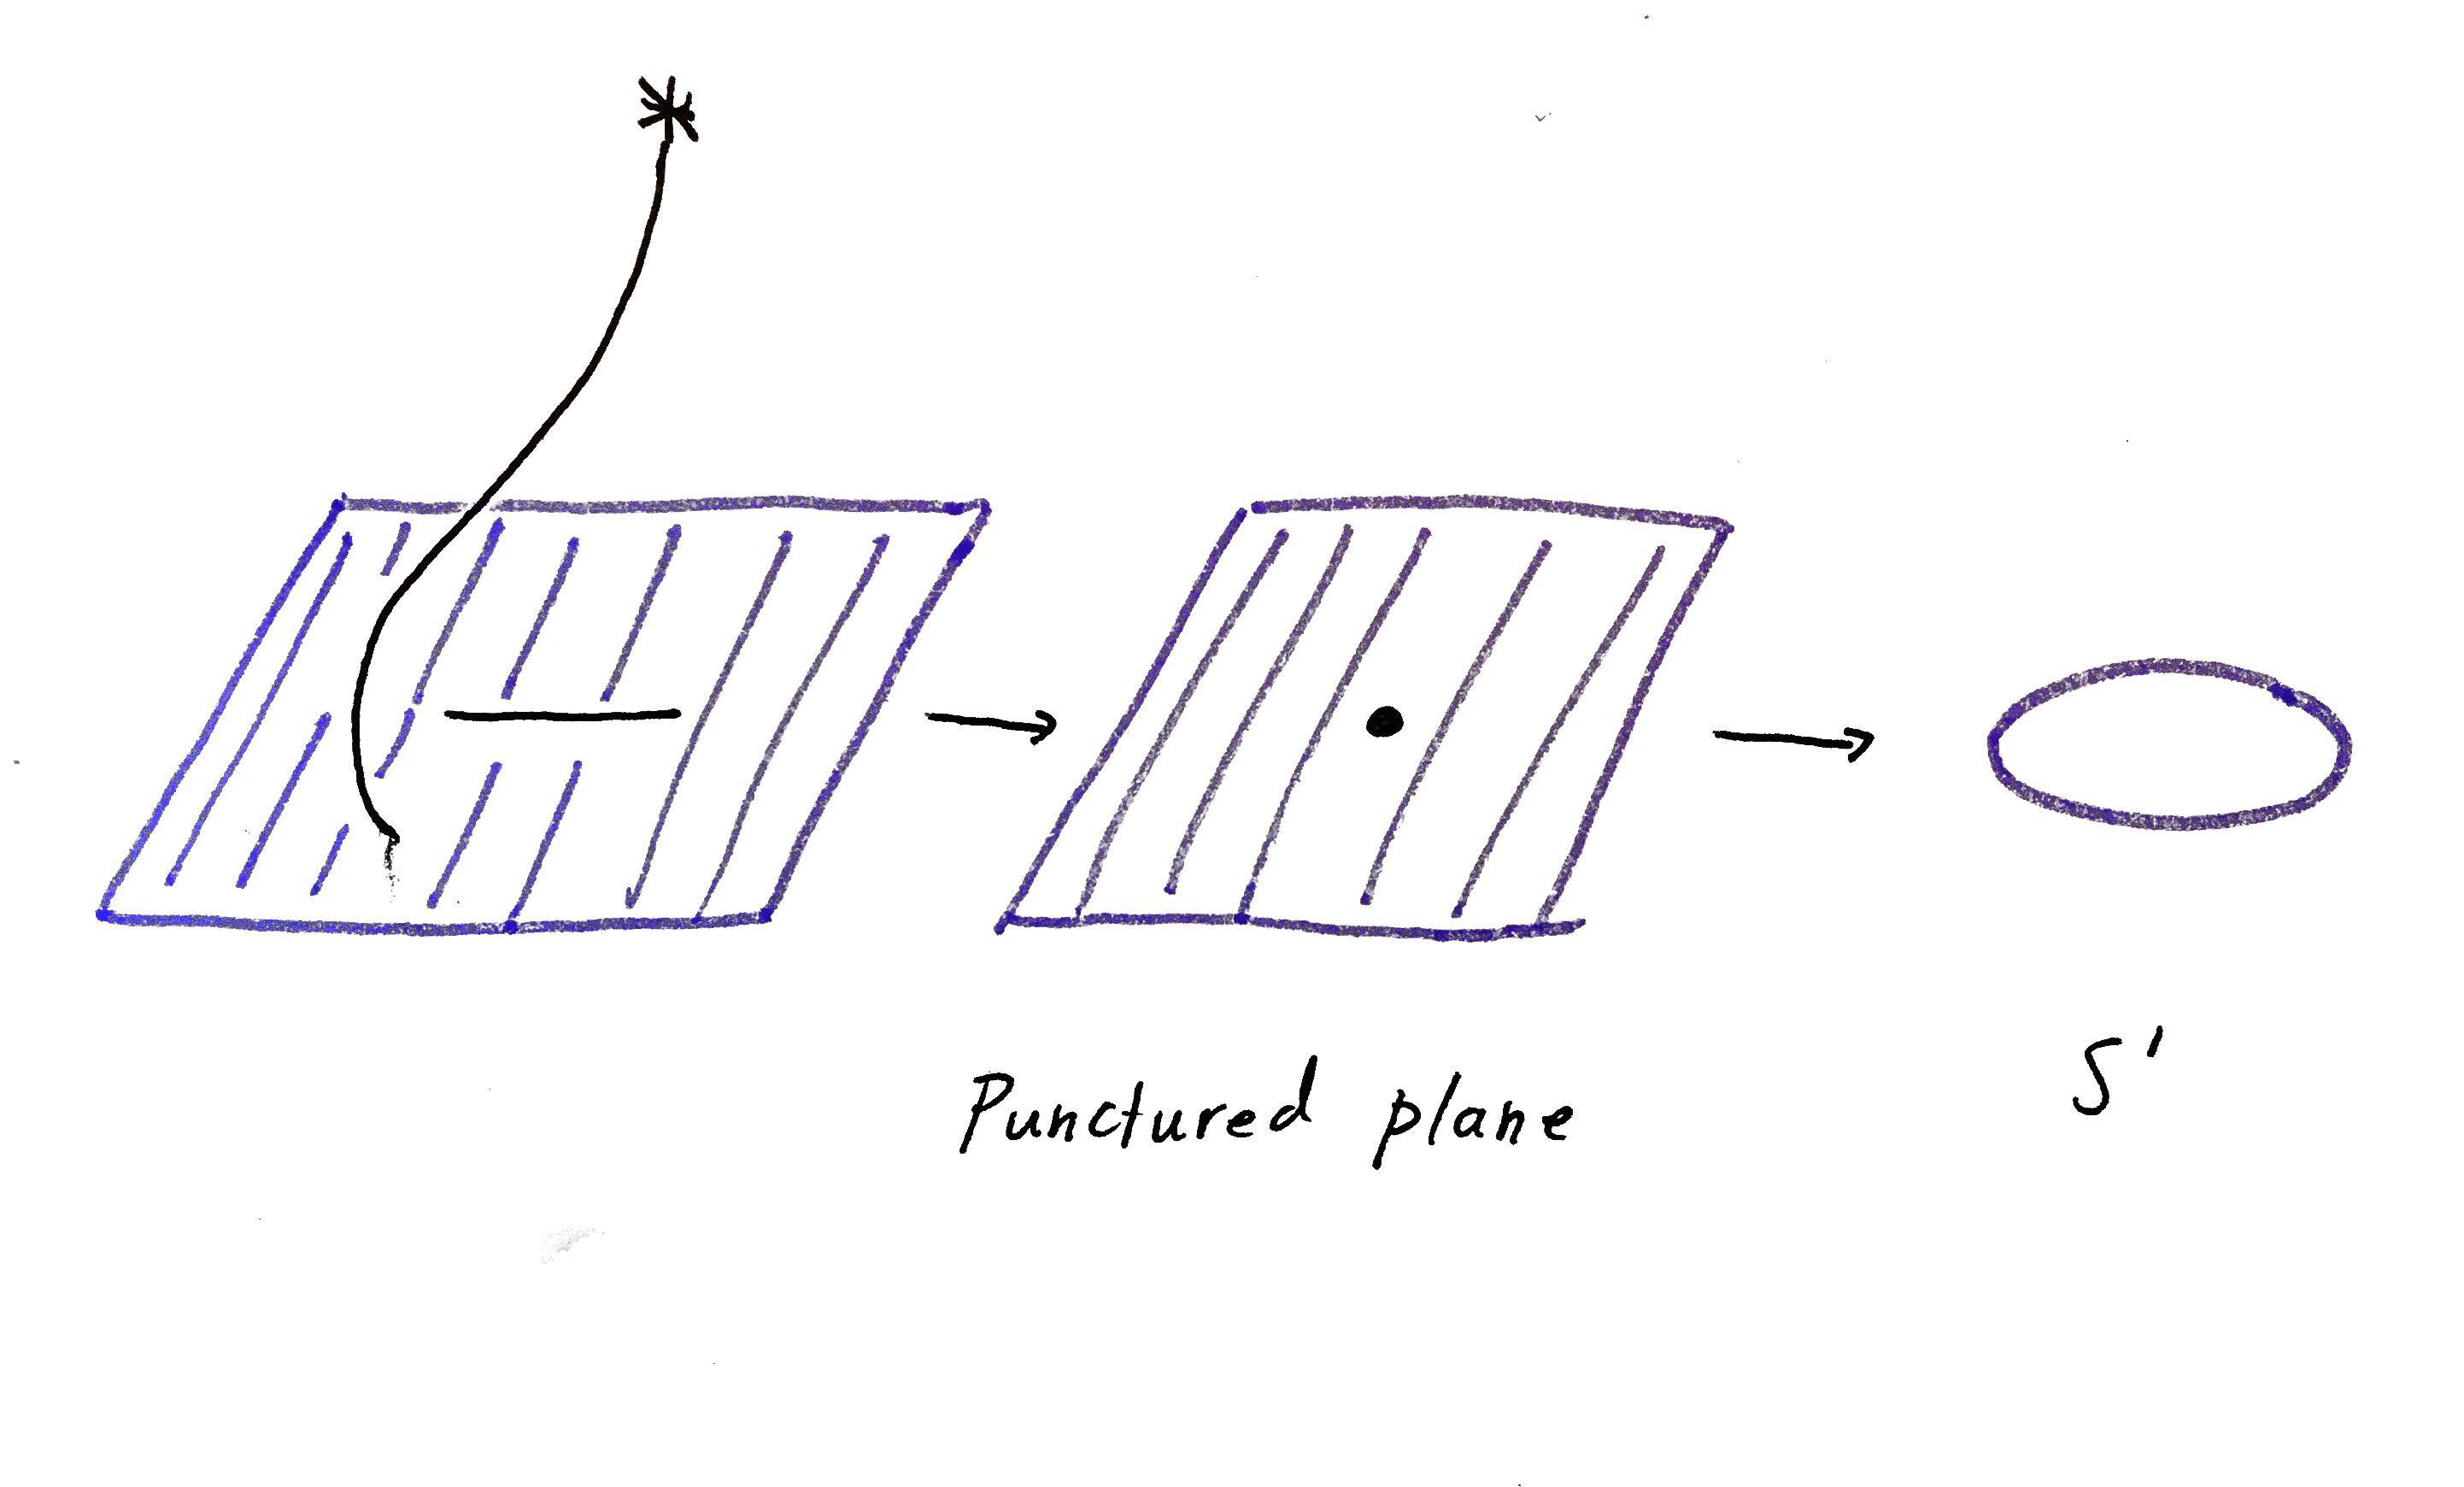 *
Punctured plane
S'